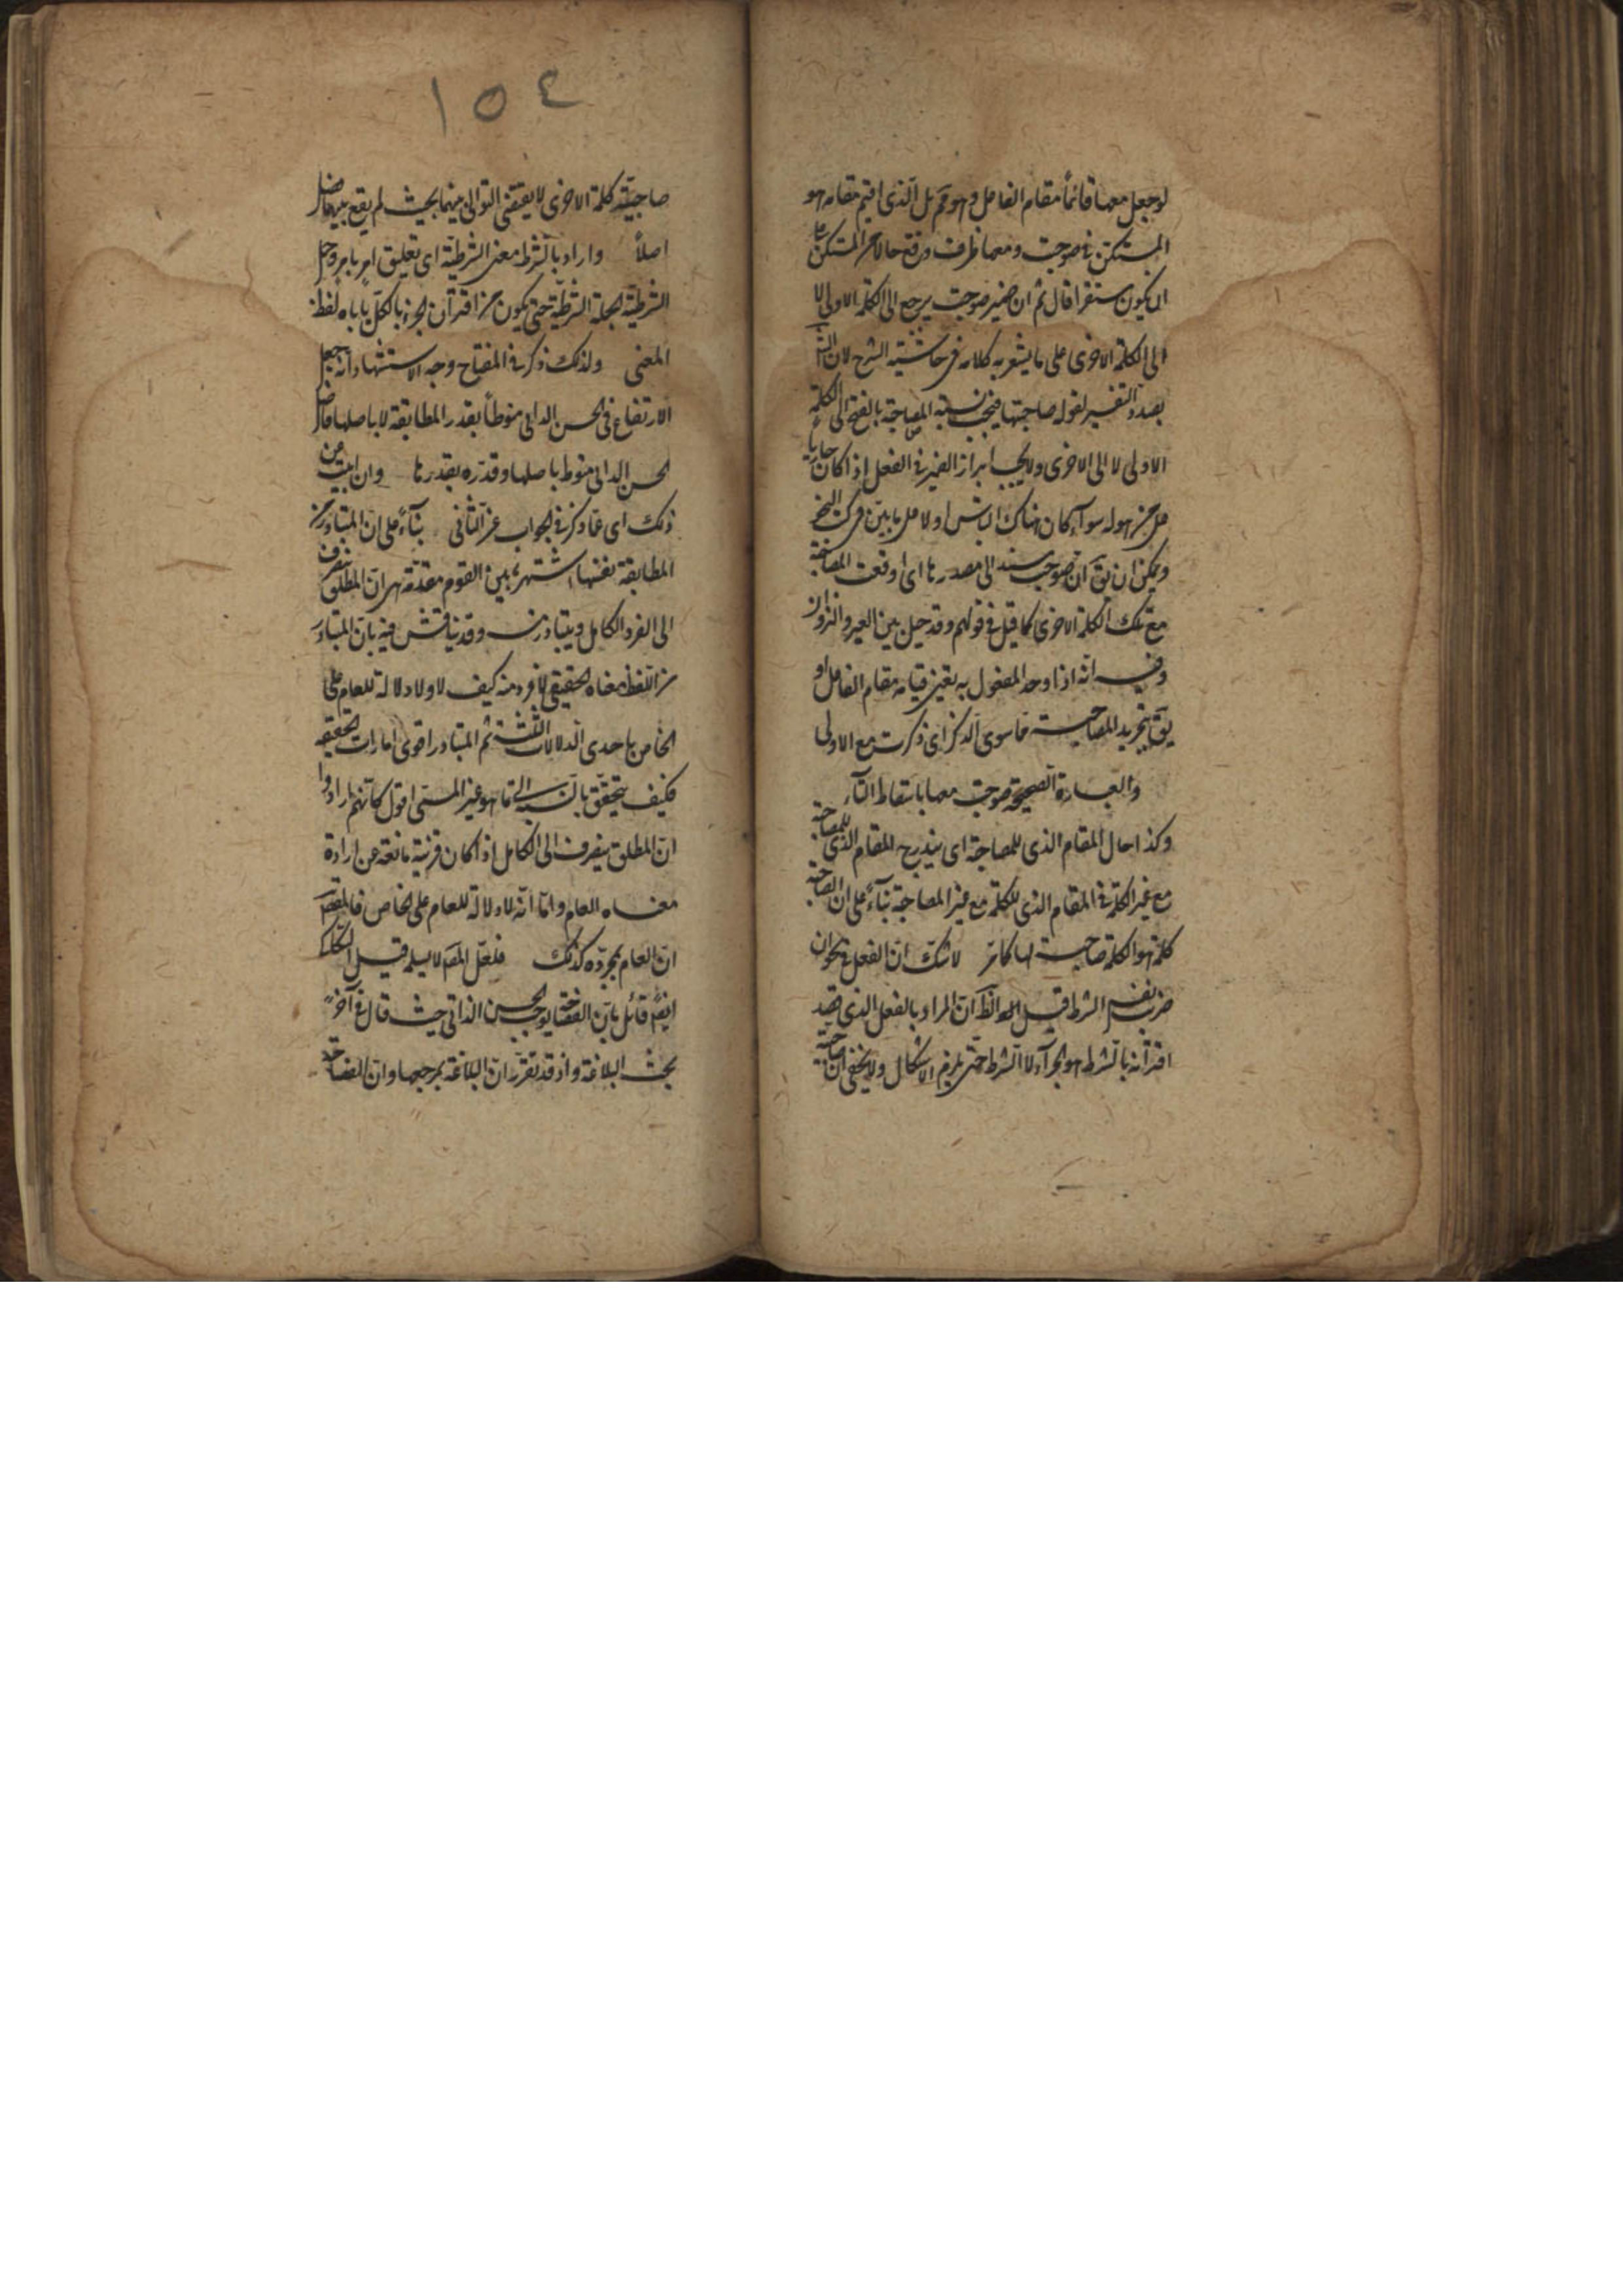 لو جعل معها قائماً مقام الفاعل وهو قم بل الذى اقيم مقامه هو
المستكن فى صوحبت ومعها ظرف وقع حالا عن المستكن
اى يكون مستقرا قال ثم ان ضمير صوحبت يرجع الى الكلمة الاولى لا
الى الكلمة الاخرى على ما يشعر به كلامه فى حاشيته الشرح لان
بصدد التفسير لقوله صاحبتها فيجب نسبة المصاحبة بالفتح الى الكلمة
الاولى لا الى الاخرى ولا يجب ابراز الضمير فى الفعل اذا كان جاريا
على غير هو له سوآء كان هناك الباس اولا على ما بيّن فى كتب النحو
ويمكن ان يق ان صوحبت مسند الى مصدرها اى اوقعت المصاحبة
مع تلك الكلمة الاخرى كما قيل فى قولهم وقد حيل بين العير والنزوان
وفيه انه اذا وجد المفعول به تعين قيامه مقام الفاعل او
يق بتجريد المصاحبة عما سوى الذكر اى ذكرت مع الاولى
والعبارة الصحيحة صوحبت معها باسقاط التآء
وكذا حال المقام الذى للمصاحبة اى يندرج المقام الذى للمصاحبة
مع غير الكلمة فى المقام الذى للكلمة مع غير المصاحبة بنآءً على ان المصاحبة
كلمة هو الكلمة صاحبة لها كما مرّ لا شك ان الفعل فى نحو ان
ضرب نفس الشرط قيل الظ انّ المراد بالفعل الذى قصد
اقترانه بالشرط هو الجزآء لا الشرط حتى يلزم الاشكال ولا يخفى ان
١٥٤
صاحبيّة كلمة الاخرى لا يقتضى التوالى بينهما بحيث لم يقع بينهما فاصل
اصلاً واراد بالشرط معنى الشرطيّة اى تعليق امر بامر وحمل
الشرطية الجملة الشرطيّة حتى يكون من اقتران الجزء بالكل يأباه لفظ
المعنى ولذلك ذكر فى المفتاح وجه الاستشهاد انه جعل
الارتفاع فى الحسن الذاتى منوطاً بقدر المطابقة لا باصلها فاصل
الحسن الذاتى منوط باصلها وقدره بقدرها وان ابيت عن
ذلك اى عمّا ذكر فى الجواب عن الثانى بنآءً على ان المتبادر من
المطابقة نفسها اشتهر بين القوم مقدمة هى ان المطلق ينصرف
الى الفرد الكامل ويتبادر منه وقد يناقش فيه بان المتبادر
من اللفظ معناه الحقيقى لا فرد منه كيف لا ولا دلالة للعام على
الخاص باحدى الدلالات الثلث ثم التبادر اقوى امارات الحقيقة
فكيف يتحقق بالنسبة الى ما هو غير المسمّى اقول كانّهم ارادوا
انّ المطلق ينصرف الى الكامل اذا كان قرينة مانعة عن ارادة
معناه العام وامّا انه لا دلالة للعام على الخاص فالمقصد
انّ العام بمجرّده كذلك فلعلّ المصَ لا يسلمه قيل
ايضً قائل بانّ الفصاحة يوجب الحسن الذاتى حيث قال فى آخر
بحث البلاغة واذ قد تقرر انّ البلاغة بمرجعيها وانّ الفصاحة